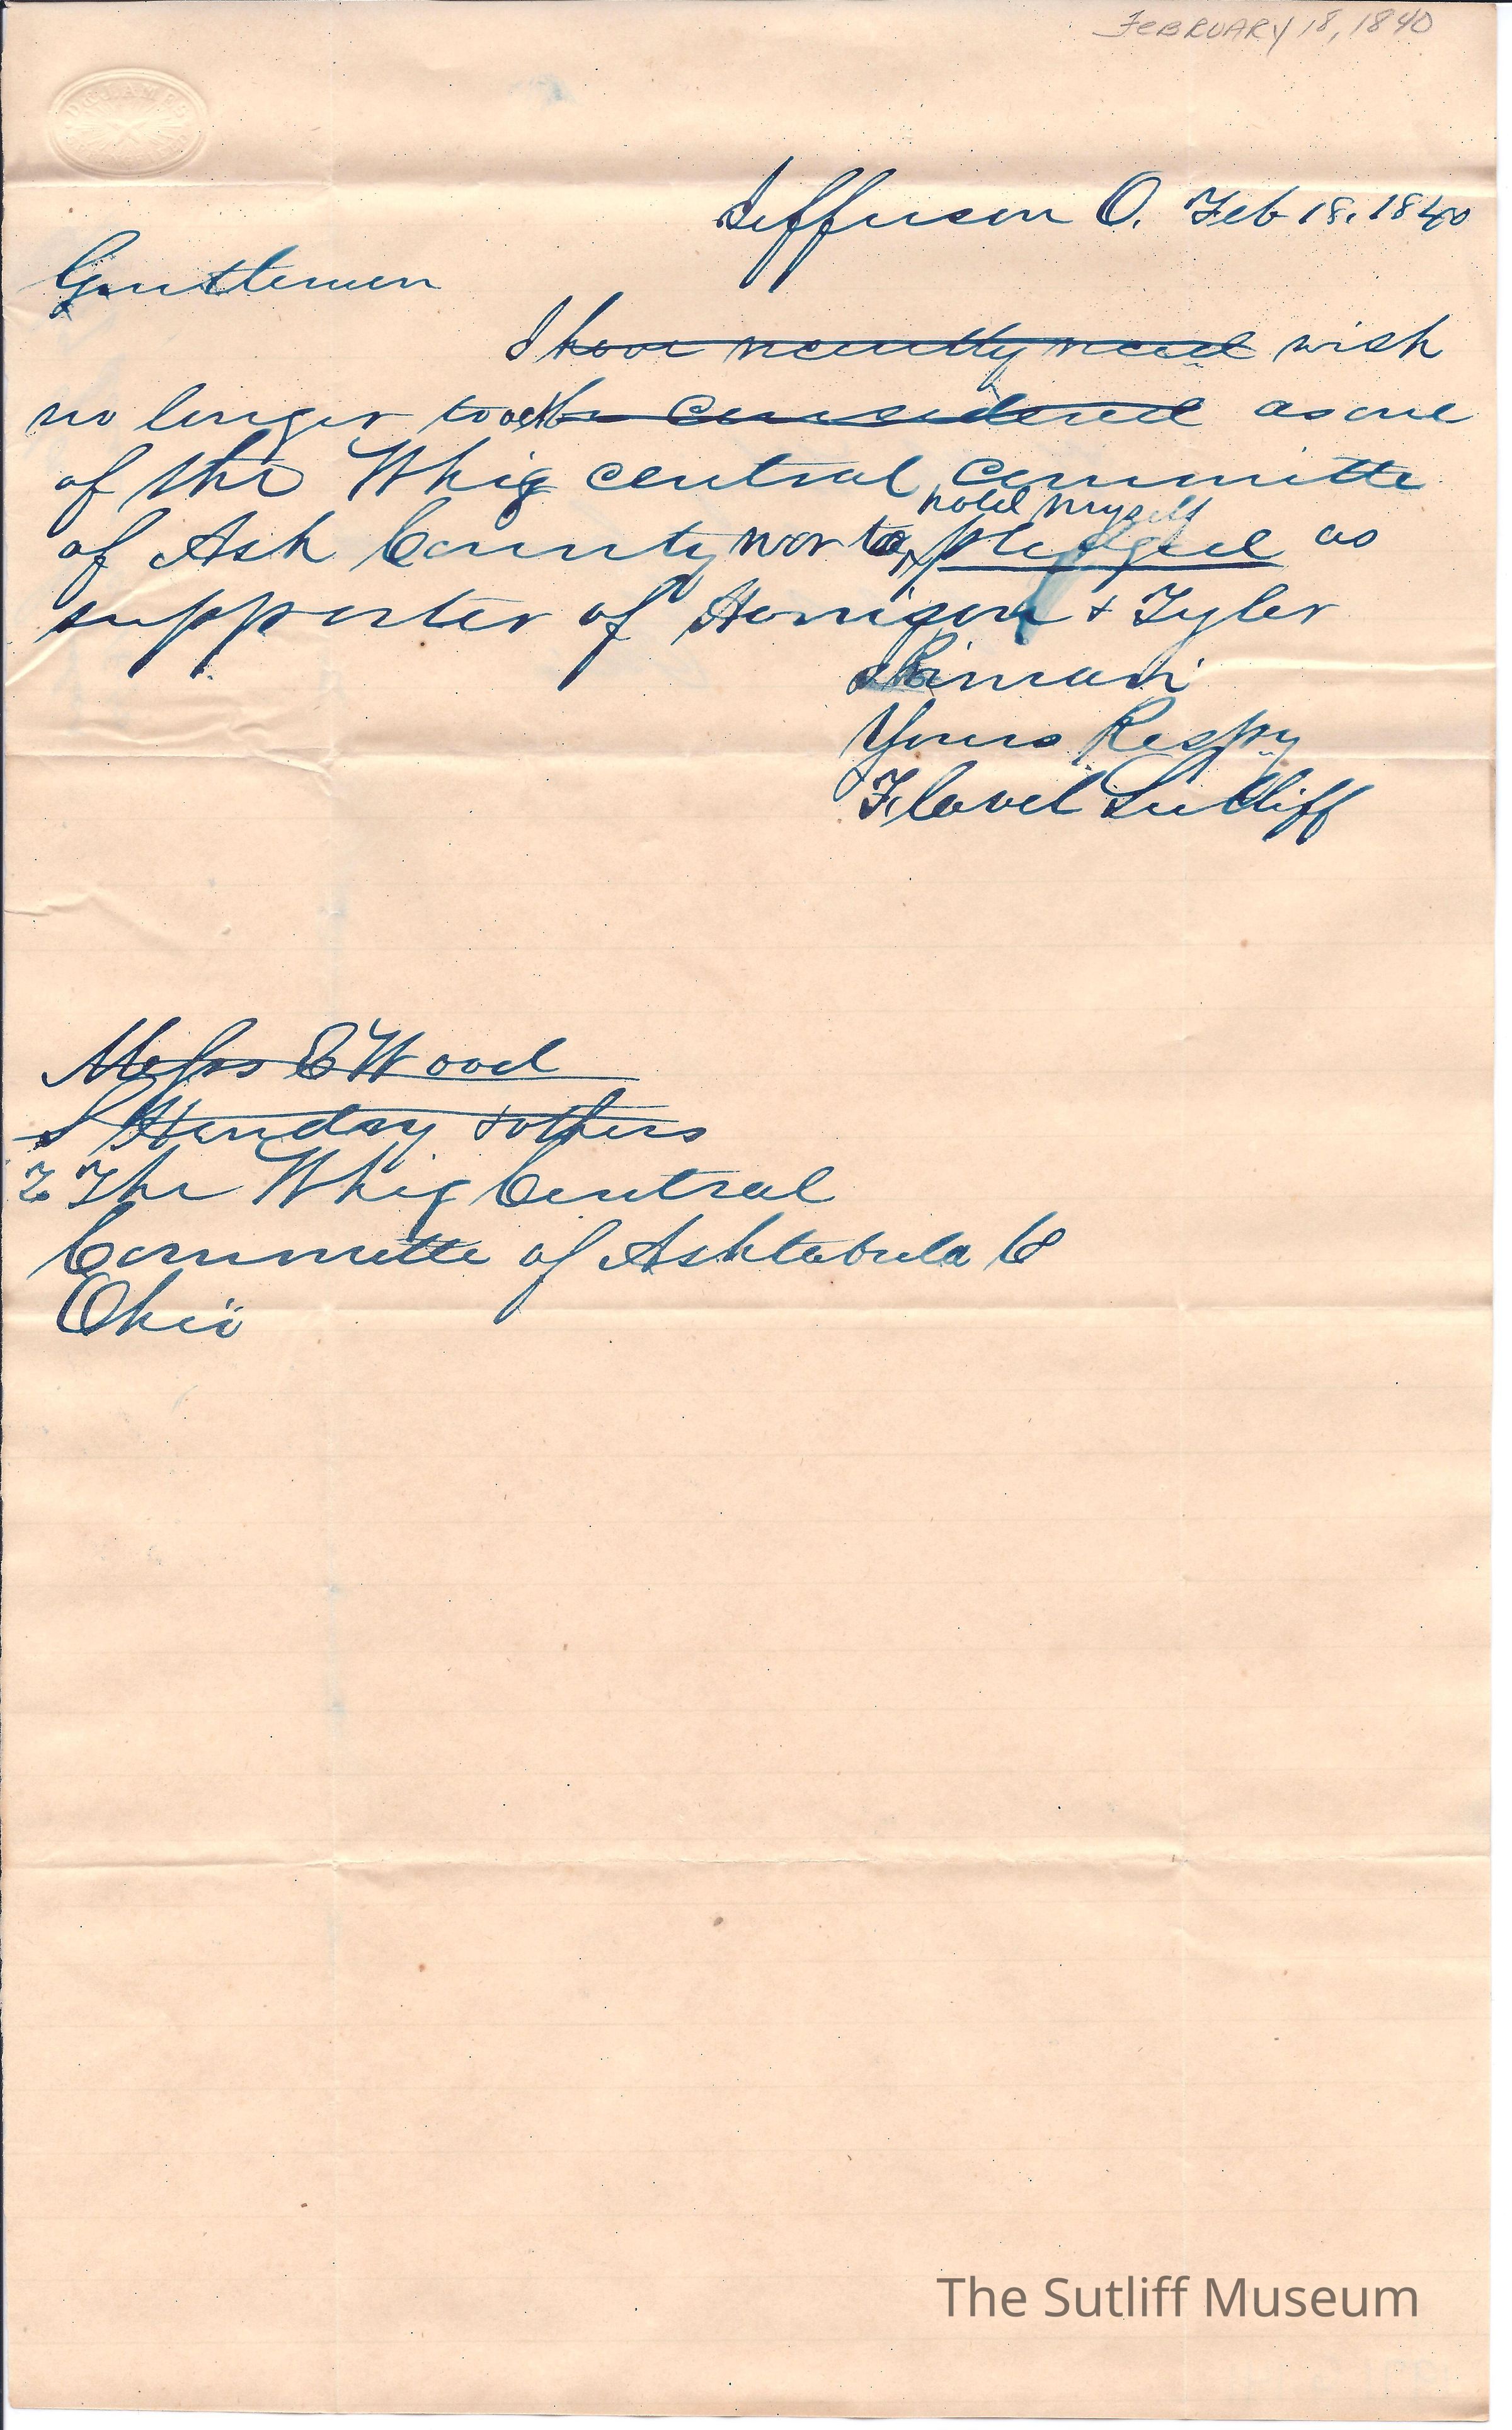 FEBRUARY 18, 1840
Jefferson O. Feb 18. 1840
Gentlemen
I have recently recd wish
no longer to act be considered as one
of the Whig central committe
hold myself
of Ash County nor to pledged as
supporter of Harrison & Tyler
Remain
Yours Respy
Flavel Sutliff
Messrs E Wood
S Hendry & others
To The Whig Central
Committe of Ashtabula Co
Ohio
The Sutliff Museum